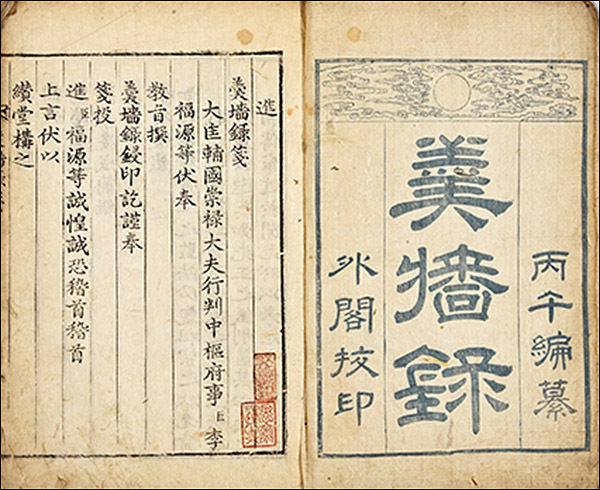 丙午編纂
羹墻錄
外閣挍印
進
羹墻錄箋
大匡輔國崇禄大夫行判中樞府事臣李
福源等伏奉
教旨撰
羹墻錄鋟印訖謹奉
箋投
進臣福源等誠惶誠恐稽首稽首
上言伏以
纘堂構之